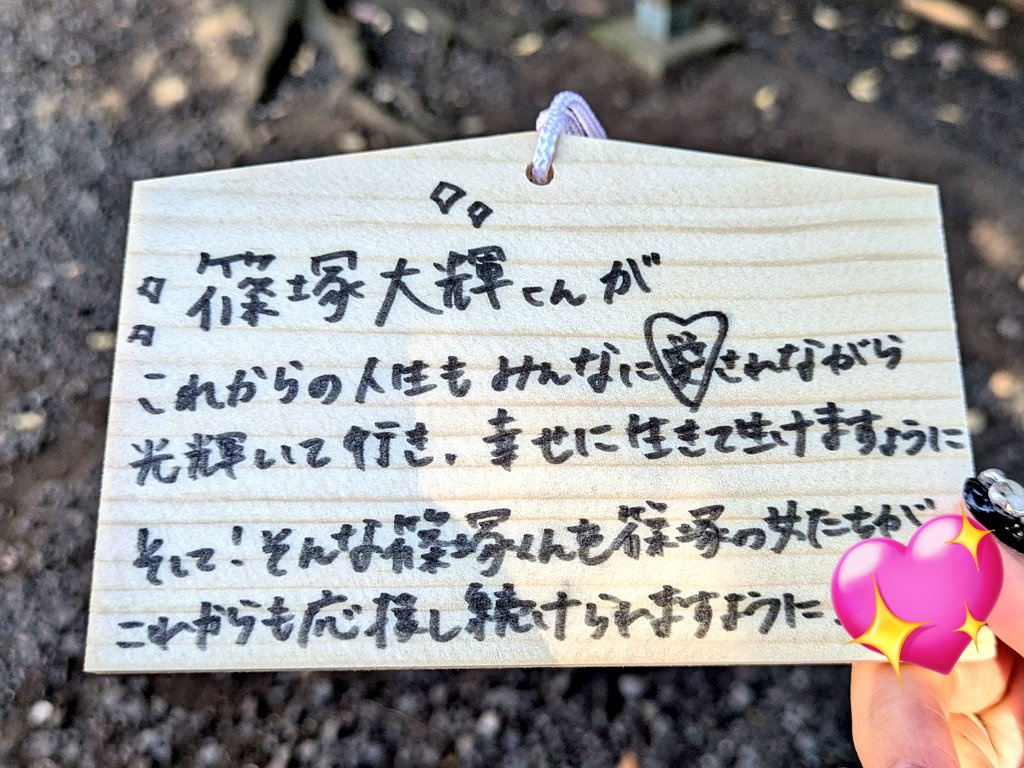 篠塚大輝くんが
これからの人生もみんなに愛されながら
光輝いて行き、幸せに生きて生けますように
そして！そんな篠塚くんを篠塚の女たちが
これからも応援し続けられますように.